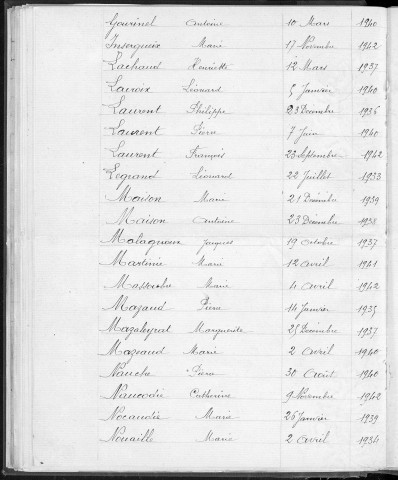 Gourinel Antoine 10 Mars 1940
Marie 17 Novembre 1942
Lachaud Henriette 12 Mars 1937
Lavoix Léonard 5 Janvier 1940
Laurent Philippe 23 Décembre 1936
Laurent Pierre 7 Juin 1940
Laurent François 23 Septembre 1942
Legrand Léonard 22 Juillet 1933
Maison Marie 21 Décembre 1939
Maison Antoine 23 Décembre 1938
Malagnoux Jacques 19 Octobre 1937
Martinie Marie 12 Avril 1941
Marie 4 Avril 1942
Mazaud Pierre 14 Janvier 1935
Mazaleyrat Marguerite 25 Décembre 1937
Mazeaud Marie 2 Avril 1940
Nauche Pierre 30 Août 1940
Naucodie Catherine 9 Novembre 1942
Nocaudie Marie 26 Janvier 1939
Nouaille Marie 2 Avril 1934